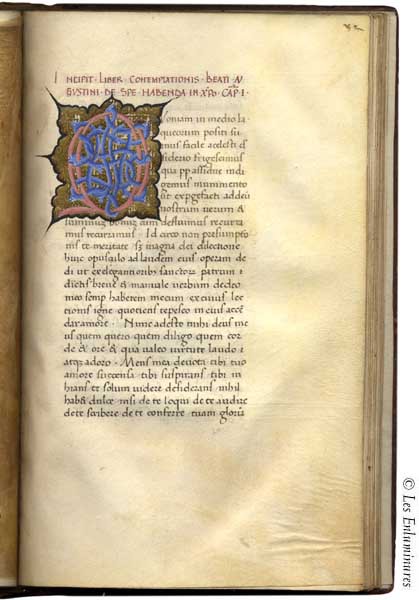 INCIPIT · LIBER CONTEMPLATIONIS · BEATI AV
GVSTINI · DE SPE HABENDA IN XPO CAP I ·
Q
uoniam in medio la
queorum positi su
mus facile a celesti d
siderio frigescimus
qua ppt assidue indi
gemus munimento
ut expgefacti ad deū
nostrum uerum &
summum bonum cum defluimus recurra
mus · Id circo non presumptio
nis temeritate sʒ magna dei dilectione
huic opusculo ad laudem eius operam de
di ut ex elegantioribs sanctorum patrum
dictis breue & manuale uerbum de deo
mecum semp haberem ex cuius lec
tionis igne quotiens tepesco in eius accē
dar amore · Nunc adesto mihi deus me
us quem quero quem diligo quem cor
de & ore & qua ualeo uirtute laudo
atq adoro · Mens mea deuota tibi tuo
amore succensa tibi suspirans tibi in
hians te solum uidere desiderans nihil
habet dulce nisi de te loqui de te audire
de te scribere de te conferre tuam gloriā
© Les Enluminures